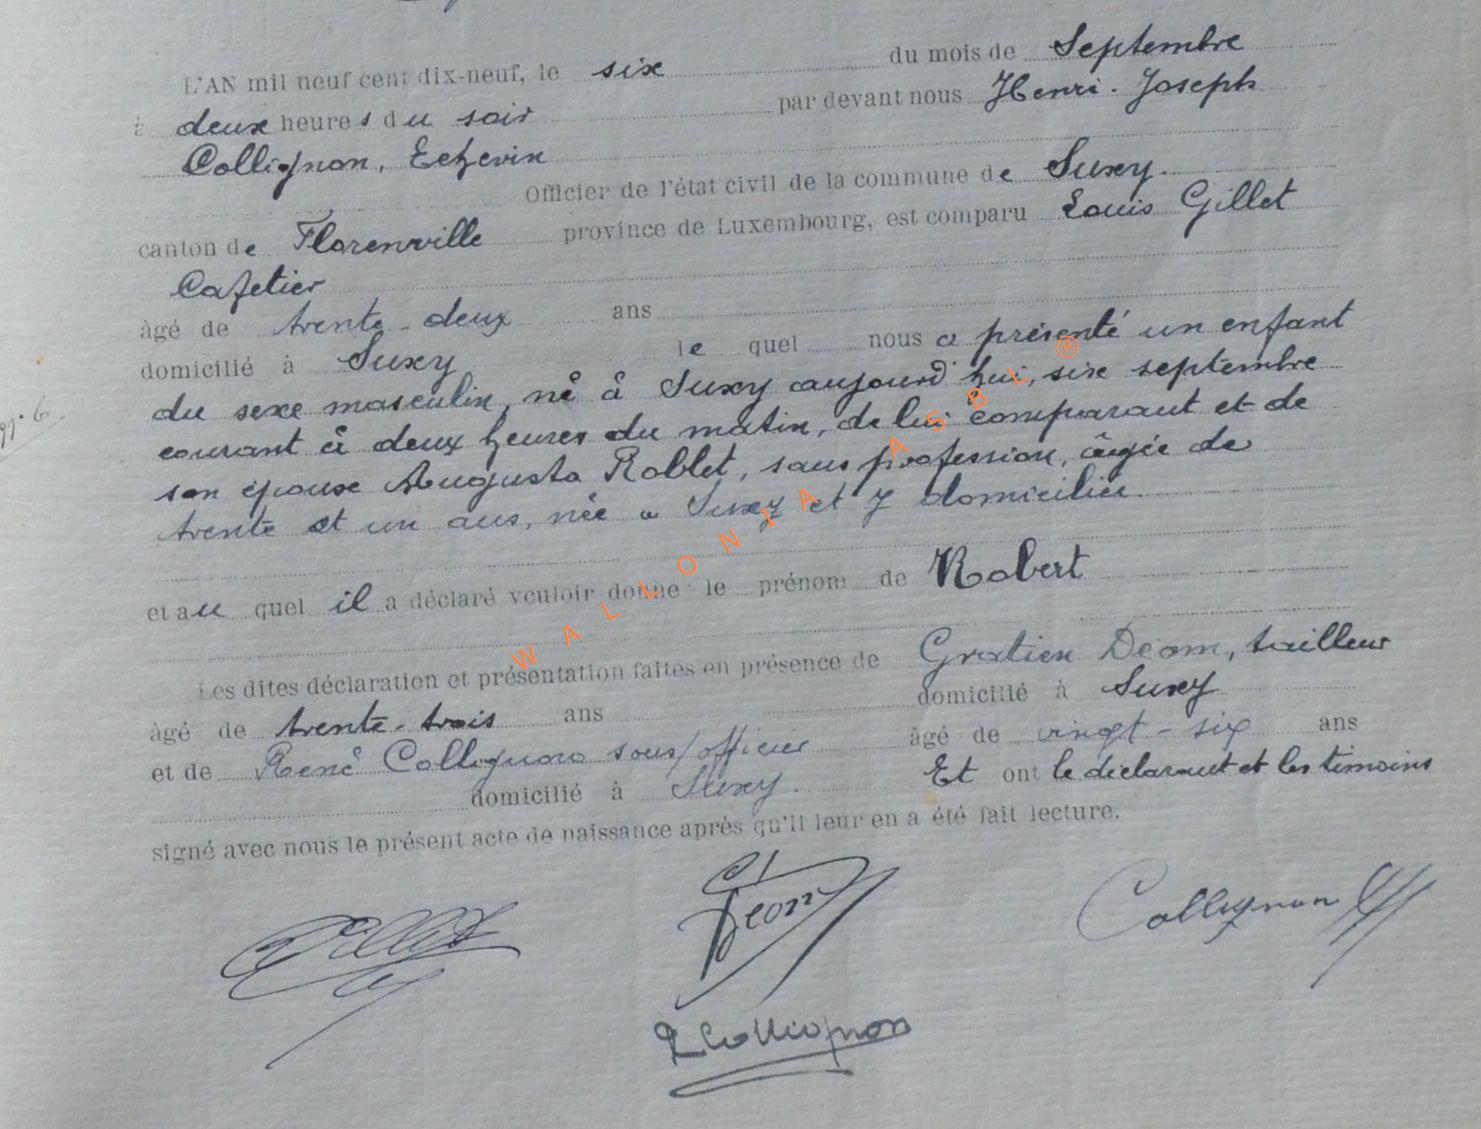 L'AN mil neuf cent dix-neuf, le six du mois de Septembre
à deux heures du soir par devant nous Henri-Joseph
Collignon, Echevin
Officier de l'état civil de la commune de Suxy.
canton de Florenville province de Luxembourg, est comparu Louis Gillet
Cafetier
âgé de trente-deux ans
domicilié à Suxy le quel nous a présenté un enfant
du sexe masculin, né à Suxy aujourd'hui, six septembre
courant à deux heures du matin, de lui comparant et de
son épouse Augusta Roblet, sans profession, âgée de
trente et un ans, née à Suxy et y domiciliée.
N° 6.
et au quel il a déclaré vouloir donne le prénom de Robert
Les dites déclaration et présentation faites en présence de Gratien Déom, tailleur
âgé de trente-trois ans domicilié à Suxy
et de René Collignon sous/officier âgé de vingt-six ans
domicilié à Suxy. Et ont le déclarant et les témoins
signé avec nous le présent acte de naissance après qu'il leur en a été fait lecture.
Gillet
Déom
Collignon
R Collignon
WALLONIA ASBL ®